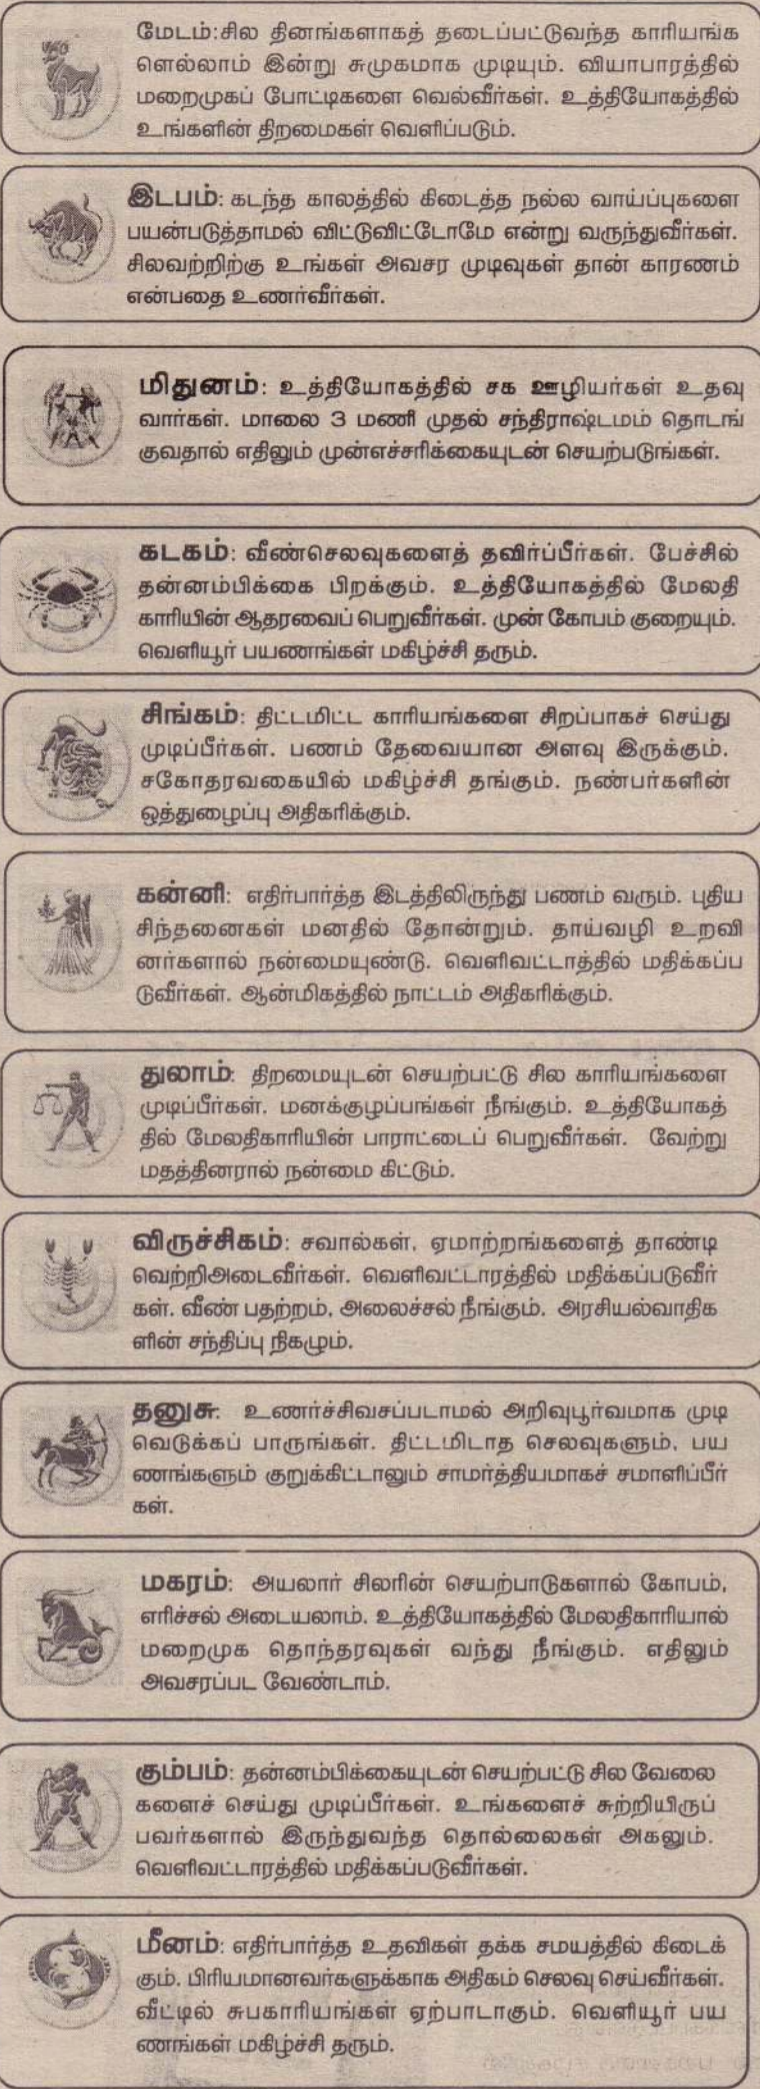 மேடம்:சில தினங்களாகத் தடைப்பட்டுவந்த காரியங்க
ளெல்லாம் இன்று சுமுகமாக முடியும். வியாபாரத்தில்
மறைமுகப் போட்டிகளை வெல்வீர்கள். உத்தியோகத்தில்
உங்களின் திறமைகள் வெளிப்படும்.
இடபம்: கடந்த காலத்தில் கிடைத்த நல்ல வாய்ப்புகளை
பயன்படுத்தாமல் விட்டுவிட்டோமே என்று வருந்துவீர்கள்.
சிலவற்றிற்கு உங்கள் அவசர முடிவுகள் தான் காரணம்
என்பதை உணர்வீர்கள்.
மிதுனம்: உத்தியோகத்தில் சக ஊழியர்கள் உதவு
வார்கள். மாலை 3 மணி முதல் சந்திராஷ்டமம் தொடங்
குவதால் எதிலும் முன்எச்சரிக்கையுடன் செயற்படுங்கள்.
கடகம்: வீண்செலவுகளைத் தவிர்ப்பீர்கள். பேச்சில்
தன்னம்பிக்கை பிறக்கும். உத்தியோகத்தில் மேலதி
காரியின் ஆதரவைப் பெறுவீர்கள். முன் கோபம் குறையும்.
வெளியூர் பயணங்கள் மகிழ்ச்சி தரும்.
சிங்கம்: திட்டமிட்ட காரியங்களை சிறப்பாகச் செய்து
முடிப்பீர்கள். பணம் தேவையான அளவு இருக்கும்.
சகோதரவகையில் மகிழ்ச்சி தங்கும். நண்பர்களின்
ஒத்துழைப்பு அதிகரிக்கும்.
கன்னி: எதிர்பார்த்த இடத்திலிருந்து பணம் வரும். புதிய
சிந்தனைகள் மனதில் தோன்றும். தாய்வழி உறவி
னர்களால் நன்மையுண்டு. வெளிவட்டாத்தில் மதிக்கப்ப
டுவீர்கள். ஆன்மிகத்தில் நாட்டம் அதிகரிக்கும்.
துலாம்: திறமையுடன் செயற்பட்டு சில காரியங்களை
முடிப்பீர்கள். மனக்குழப்பங்கள் நீங்கும். உத்தியோகத்
தில் மேலதிகாரியின் பாராட்டைப் பெறுவீர்கள். வேற்று
மதத்தினரால் நன்மை கிட்டும்.
விருச்சிகம்: சவால்கள், ஏமாற்றங்களைத் தாண்டி
வெற்றிஅடைவீர்கள். வெளிவட்டாரத்தில் மதிக்கப்படுவீர்
கள். வீண் பதற்றம், அலைச்சல் நீங்கும். அரசியல்வாதிக
ளின் சந்திப்பு நிகழும்.
தனுசு: உணர்ச்சிவசப்படாமல் அறிவுபூர்வமாக முடி
வெடுக்கப் பாருங்கள். திட்டமிடாத செலவுகளும், பய
ணங்களும் குறுக்கிட்டாலும் சாமர்த்தியமாகச் சமாளிப்பீர்
கள்.
மகரம்: அயலார் சிலரின் செயற்பாடுகளால் கோபம்,
எரிச்சல் அடையலாம். உத்தியோகத்தில் மேலதிகாரியால்
மறைமுக தொந்தரவுகள் வந்து நீங்கும். எதிலும்
அவசரப்பட வேண்டாம்.
கும்பம்: தன்னம்பிக்கையுடன் செயற்பட்டு சில வேலை
களைச் செய்து முடிப்பீர்கள். உங்களைச் சுற்றியிருப்
பவர்களால் இருந்துவந்த தொல்லைகள் அகலும்.
வெளிவட்டாரத்தில் மதிக்கப்படுவீர்கள்.
மீனம்: எதிர்பார்த்த உதவிகள் தக்க சமயத்தில் கிடைக்
கும். பிரியமானவர்களுக்காக அதிகம் செலவு செய்வீர்கள்.
வீட்டில் சுபகாரியங்கள் ஏற்பாடாகும். வெளியூர் பய
ணங்கள் மகிழ்ச்சி தரும்.